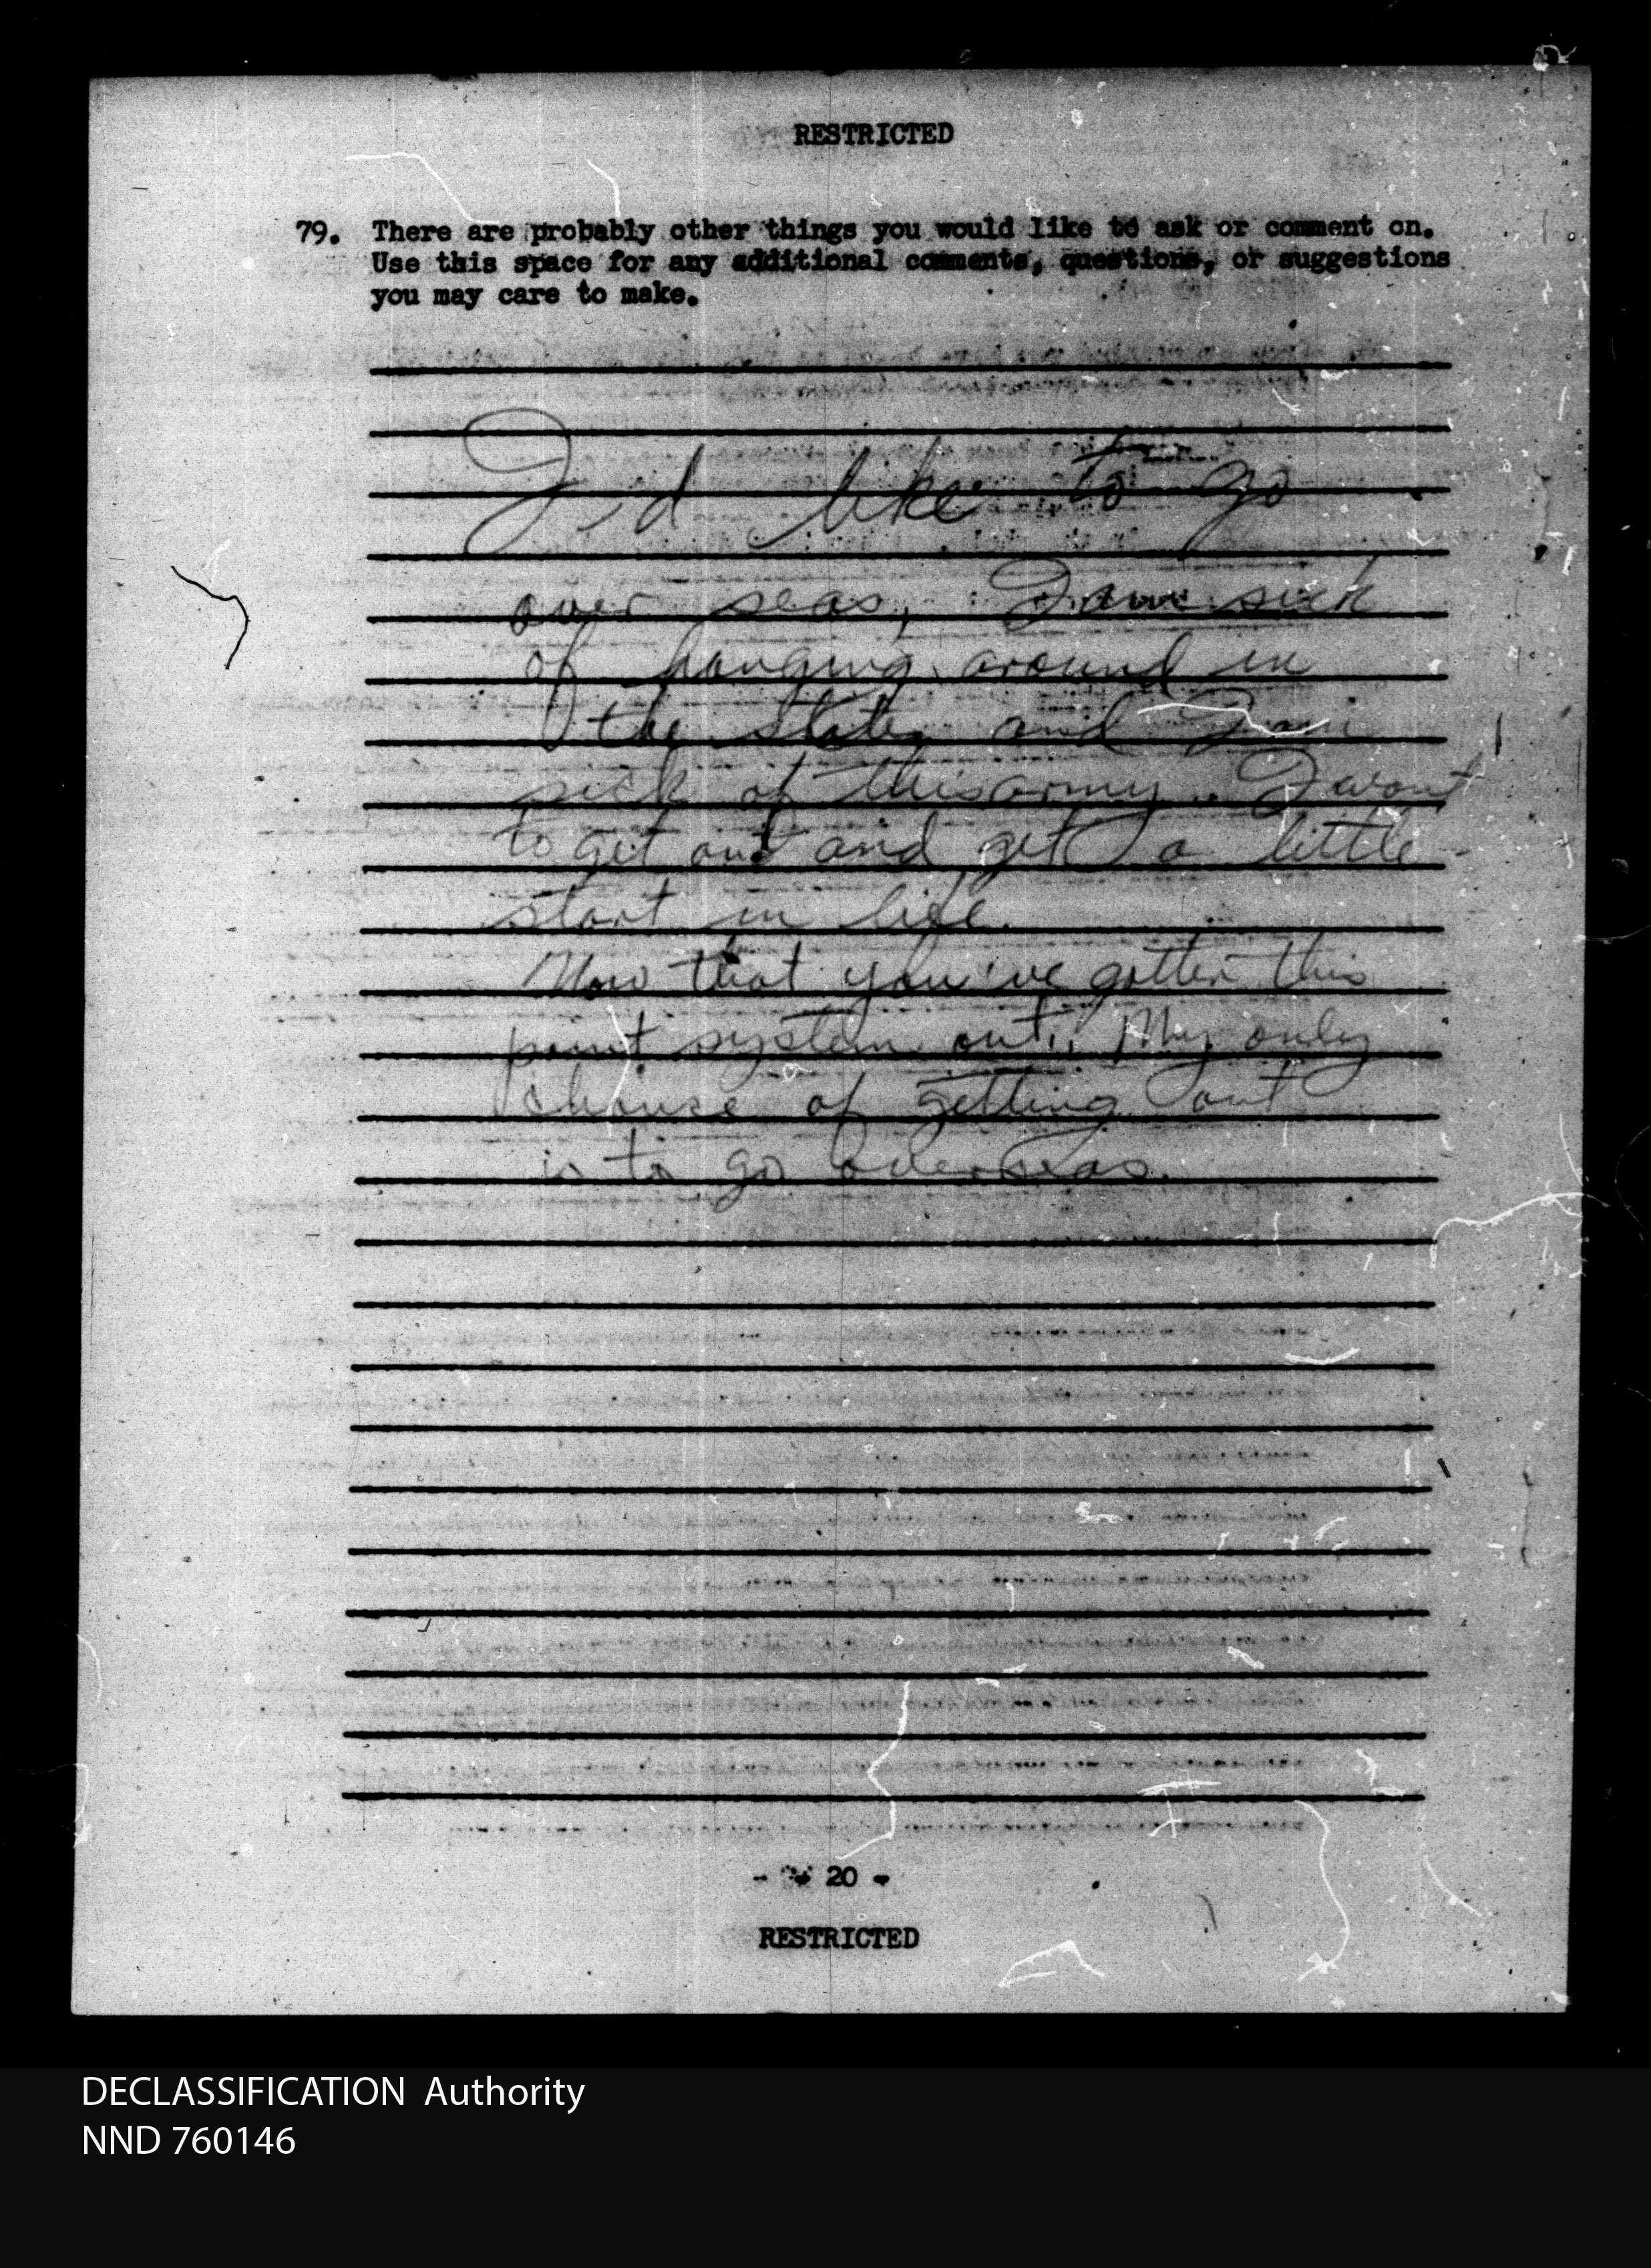 RESTRICTED
79. There are probably other things you would like to ask or comment on.
Use this space for any additional comments, questions, or suggestions
you may care to make.
I'd like to go
over seas, I am sick
of hanging around in
the states and I am
sick of this army. I want
to get out and get a little
start in life.
Now that you've gotten this
point system out, My only
chance of getting out
is to go overseas.
- 20 -
RESTRICTED
DECLASSIFICATION Authority
NND 760146